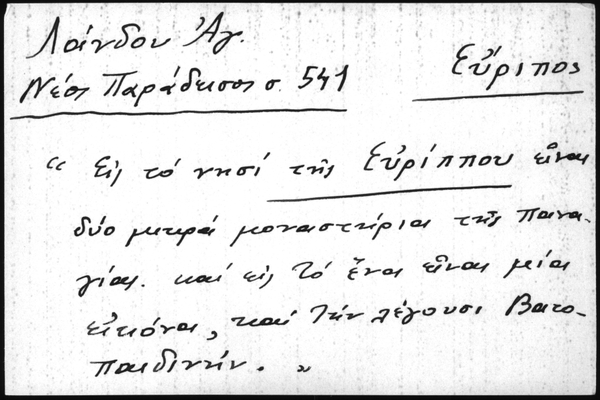 Λάνδου Ἀγ.
Νέος Παράδεισος σ. 541
Εὔριπος
“ Εἰς τό νησί τῆς Εὐρίππου εἶναι
δύο μικρά μοναστήρια τῆς Πανα-
γίας. καί εἰς τό ἕνα εἶναι μία
εἰκόνα, καί τήν λέγουσι Βατο-
παιδινήν. „